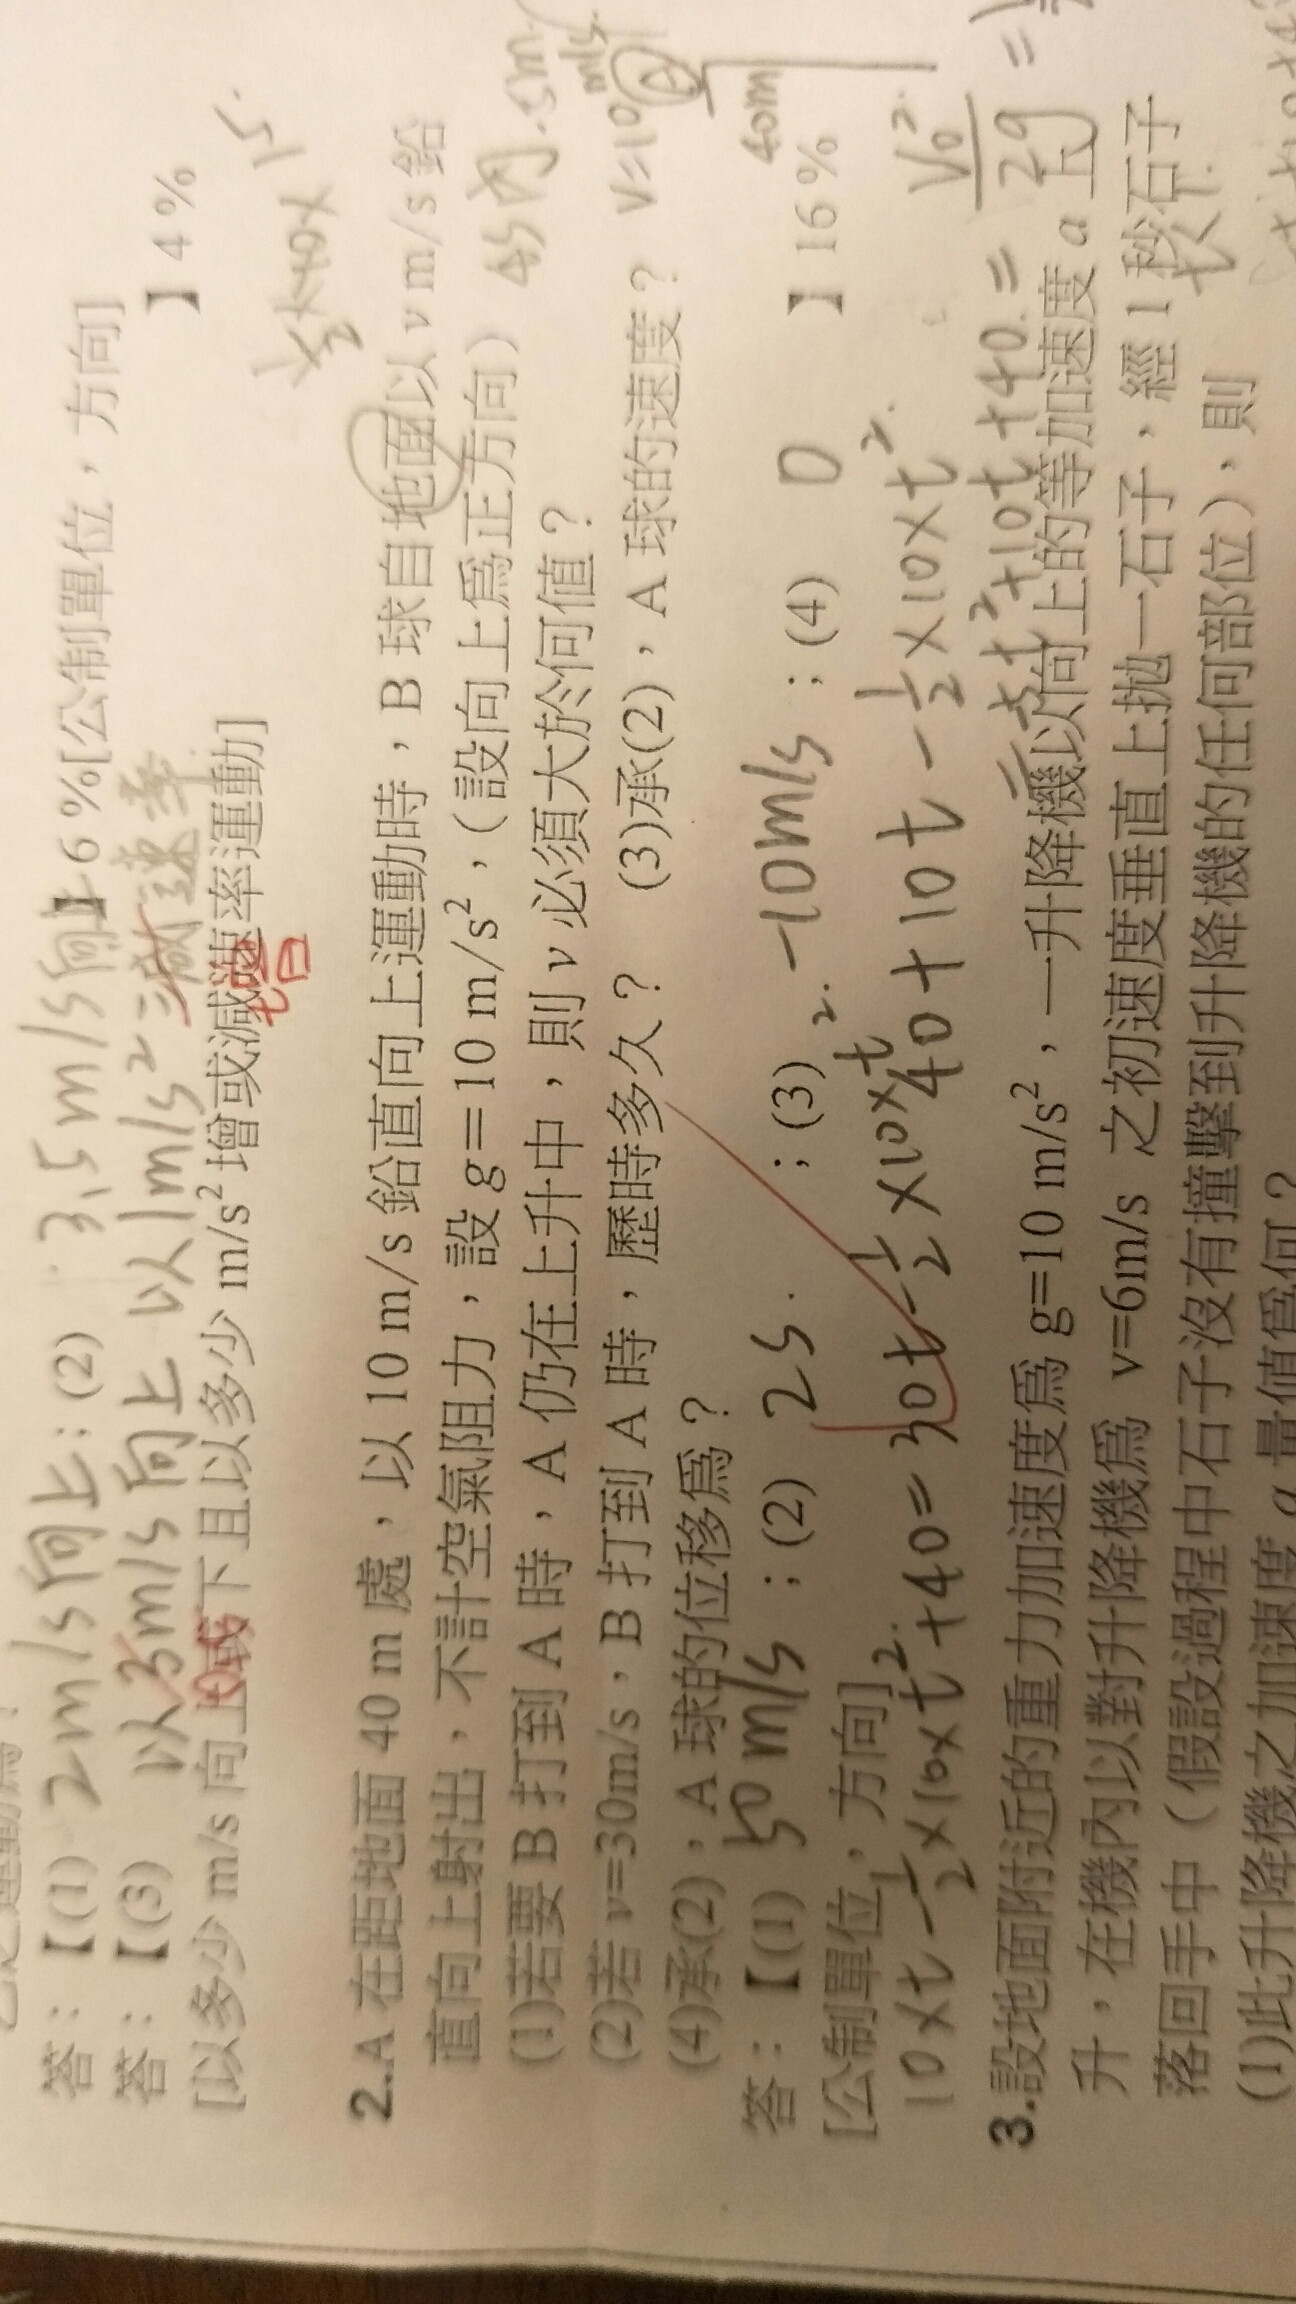 答：【(1) 2m/s向上；(2) 3.5m/s向上】6%[公制單位，方向]
答：【(3) 以3m/s向上 以1m/s² 減速率 】4%
[以多少m/s向上或下且以多少m/s²增或減速率運動]
增
½×10×
15.
2..A在距地面40 m處，以10 m/s鉛直向上運動時，B球自地面以v m/s鉛
直向上射出，不計空氣阻力，設g＝10 m/s²，（設向上爲正方向）
4s內.5m.
(1)若要B打到A時，A仍在上升中，則v必須大於何值？
V=10m/s
A
40m
(2)若v=30m/s，B打到A時，歷時多久？ (3)承(2)，A球的速度？
(4)承(2)，A球的位移爲？
答：【(1) 50m/s ；(2) 2s. ；(3) -10m/s ；(4) 0 】16%
[公制單位，方向]
10×t-½×10×t²+40=30t-½×10×t²
40+10t-½×10×t²
-5t²+10t+40.=
V₀²/2g =
3.設地面附近的重力加速度爲g=10 m/s²，一升降機以向上的等加速度a上
升，在機內以對升降機爲 v=6m/s 之初速度垂直上拋一石子，經1秒石子
落回手中（假設過程中石子沒有撞擊到升降機的任何部位），則
(1)此升降機之加速度a量值爲何？